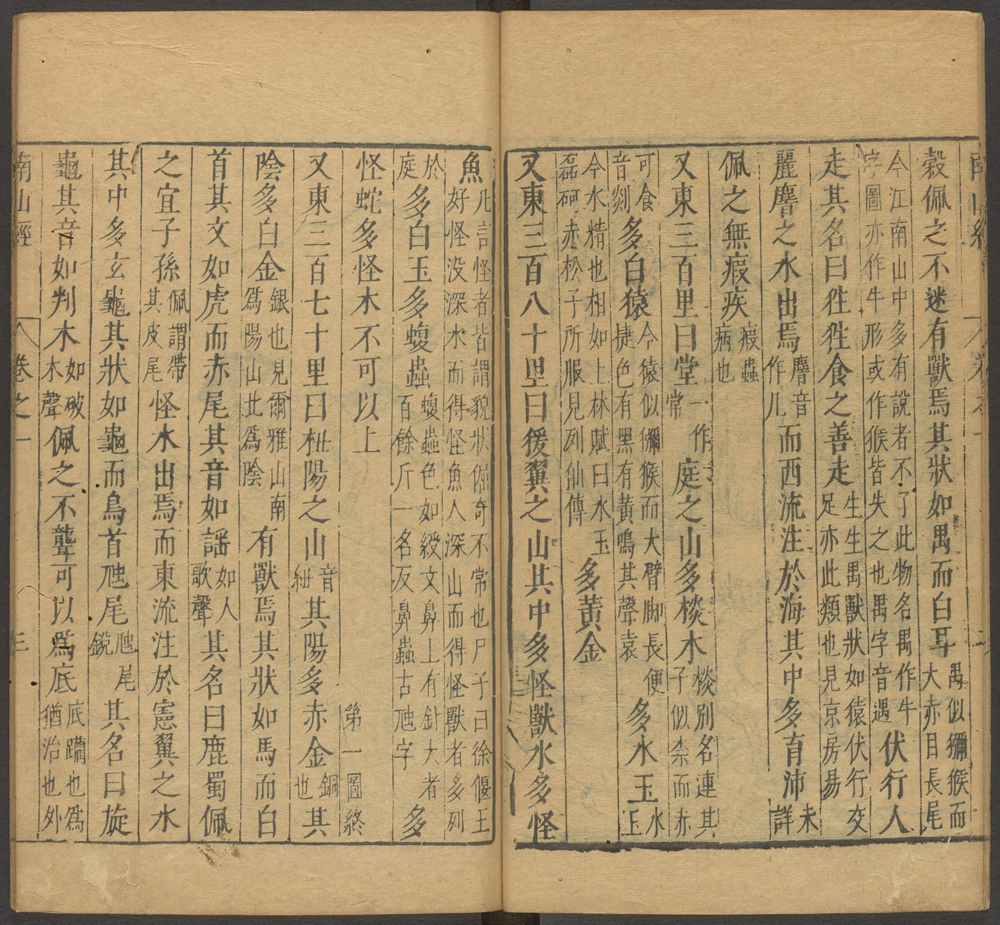 穀佩之不迷有獸焉其狀如禺而白耳禺似獼猴而大赤目長尾
今江南山中多有說者不了此物名禺作牛字圖亦作牛形或作猴皆失之也禺字音遇伏行人
走其名曰狌狌食之善走生生禺獸狀如猿伏行交足亦此類也見京房易
麗𪊨之水出焉𪊨音作几而西流注於海其中多育沛未詳
佩之無瘕疾瘕蟲病也
又東三百里曰堂一作常庭之山多棪木棪別名連其子似柰而赤
可食音剡多白猿今猿似獼猴而大臂脚長便捷色有黑有黃鳴其聲袁多水玉水玉
今水精也相如上林賦曰水玉磊砢赤松子所服見列仙傳多黃金
又東三百八十里曰猨翼之山其中多怪獸水多怪
魚凡言怪者皆謂貌狀倔奇不常也尸子曰徐偃王好怪没深水而得怪魚人深山而得怪獸者多列
於庭多白玉多蝮蟲蝮蟲色如綬文鼻上有針大者百餘斤一名反鼻蟲古虺字多
怪蛇多怪木不可以上
第一圖終
又東三百七十里曰杻陽之山音紐其陽多赤金銅也其
陰多白金銀也見爾雅山南爲陽山北爲陰有獸焉其狀如馬而白
首其文如虎而赤尾其音如謡如人歌聲其名曰鹿蜀佩
之宜子孫佩謂帶其皮尾怪水出焉而東流注於憲翼之水
其中多玄龜其狀如龜而鳥首虺尾虺尾銳其名曰旋
龜其音如判木如破木聲佩之不聾可以爲底底躪也爲猶治也外
南山經 卷之一 三